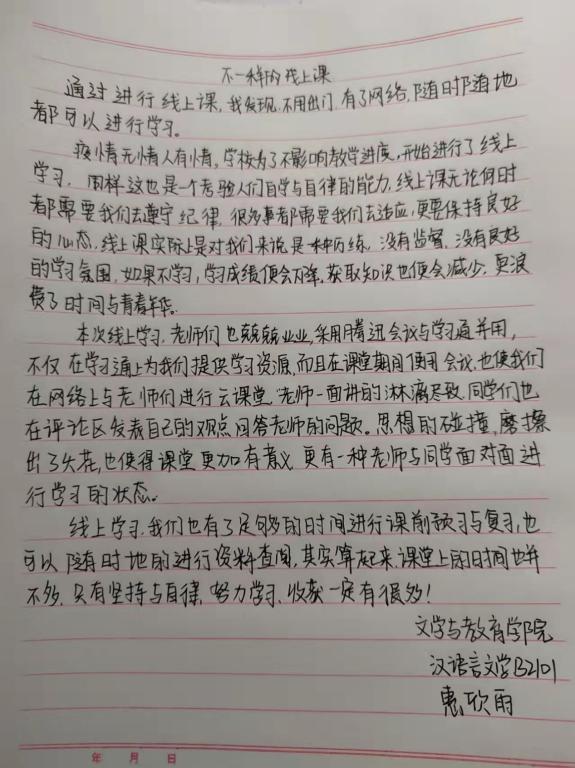 不一样的线上课
通过进行线上课,我发现,不用出门,有了网络,随时随地
都可以进行学习。
疫情无情人有情,学校为了不影响教学进度,开始进行了线上
学习,同样这也是一个考验人们自学与自律的能力,线上课无论何时
都需要我们去遵守纪律,很多事都需要我们去适应,更要保持良好
的心态,线上课实际上是对我们来说是一种历练,没有监督,没有良好
的学习氛围,如果不学习,学习成绩便会下降,获取知识也便会减少,更浪
费了时间与青春年华。
本次线上学习,老师们也兢兢业业,采用腾迅会议与学习通并用,
不仅在学习通上为我们提供学习资源,而且在课堂期间使用会议,也使我们
在网络上与老师们进行云课堂,老师一面讲的淋漓尽致,同学们也
在评论区发表自己的观点,回答老师的问题。思想的碰撞,磨擦
出了火花,也使得课堂更加有意义,更有一种老师与同学面对面进
行学习的状态。
线上学习,我们也有了足够的时间进行课前预习与复习,也
可以随时地的进行资料查阅,其实算起来,课堂上的时间也并
不多,只有坚持与自律,努力学习,收获一定有很多!
文学与教育学院
汉语言文学B2101
惠欣雨
年 月 日